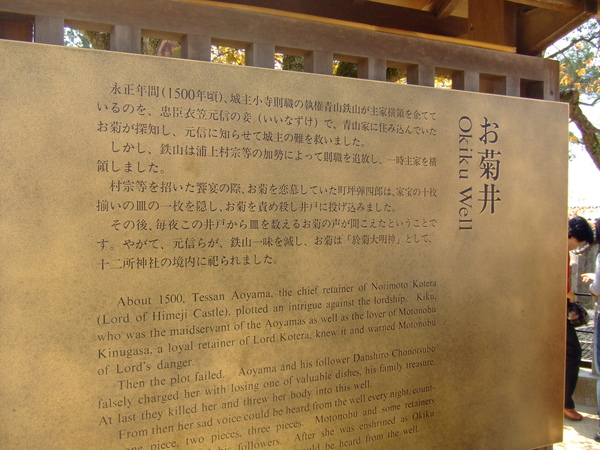 お菊井
Okiku Well
永正年間(1500年頃)、城主小寺則職の執権青山鉄山が主家横領を企てて
いるのを、忠臣衣笠元信の妾(いいなずけ)で、青山家に住み込んでいた
お菊が探知し、元信に知らせて城主の難を救いました。
しかし、鉄山は浦上村宗等の加勢によって則職を追放し、一時主家を横
領しました。
村宗等を招いた饗宴の際、お菊を恋慕していた町坪弾四郎は、家宝の十枚
揃いの皿の一枚を隠し、お菊を責め殺し井戸に投げ込みました。
その後、毎夜この井戸から皿を数えるお菊の声が聞こえたということで
す。やがて、元信らが、鉄山一味を滅し、お菊は「於菊大明神」として、
十二所神社の境内に祀られました。
About 1500, Tessan Aoyama, the chief retainer of Norimoto Kotera
(Lord of Himeji Castle), plotted an intrigue against the lordship. Kiku,
who was the maidservant of the Aoyamas as well as the lover of Motonobu
Kinugasa, a loyal retainer of Lord Kotera, knew it and warned Motonobu
of Lord's danger.
Then the plot failed. Aoyama and his follower Danshiro Chonotsubo
falsely charged her with losing one of valuable dishes, his family treasure.
At last they killed her and threw her body into this well.
From then her sad voice could be heard from the well every night, count-
piece, two pieces, three pieces. Motonobu and some retainers
his followers. After she was enshrined as Okiku
could be heard from the well.